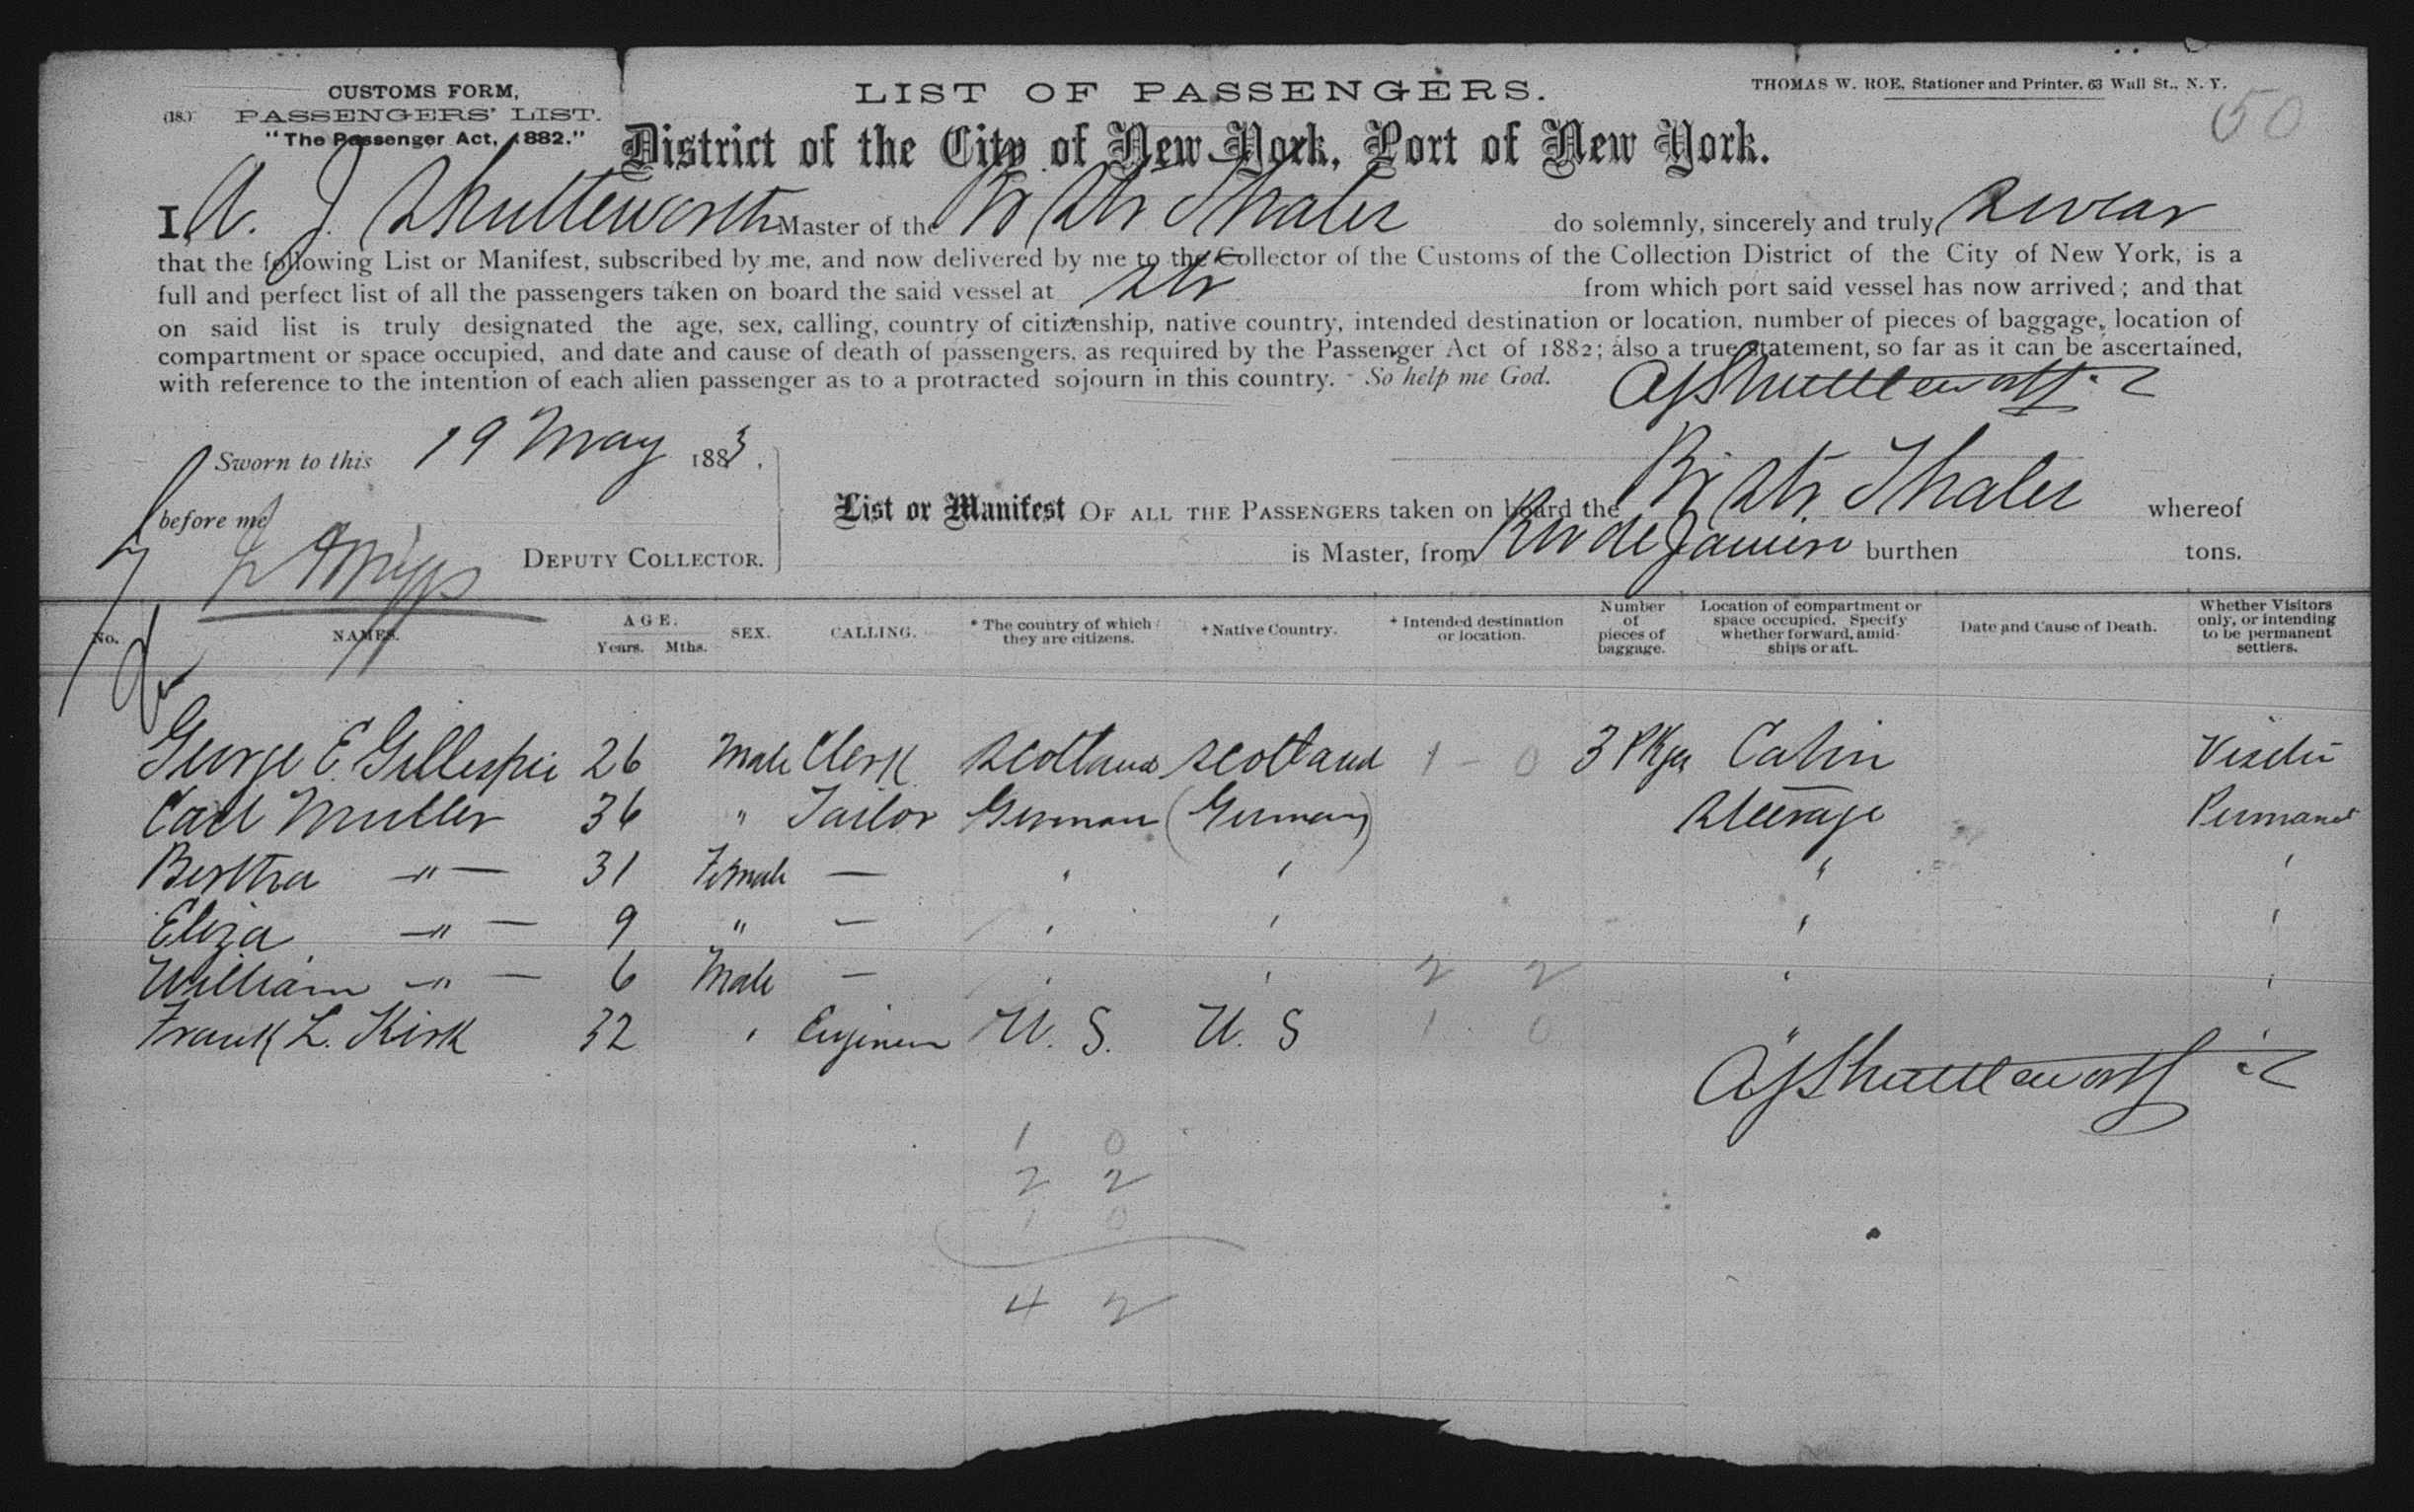 CUSTOMS FORM,
(18.) PASSENGERS' LIST.
"The Passenger Act, 1882."
LIST OF PASSENGERS.
THOMAS W. ROE, Stationer and Printer, 63 Wall St., N. Y.
50
District of the City of New York, Port of New York.
I, A. J. Shuttleworth Master of the Br Str Thales do solemnly, sincerely and truly swear
that the following List or Manifest, subscribed by me, and now delivered by me to the Collector of the Customs of the Collection District of the City of New York, is a
full and perfect list of all the passengers taken on board the said vessel at str from which port said vessel has now arrived; and that
on said list is truly designated the age, sex, calling, country of citizenship, native country, intended destination or location, number of pieces of baggage, location of
compartment or space occupied, and date and cause of death of passengers, as required by the Passenger Act of 1882; also a true statement, so far as it can be ascertained,
with reference to the intention of each alien passenger as to a protracted sojourn in this country. - So help me God.
AJShuttleworth
Sworn to this 19 May 1883.
before me
DEPUTY COLLECTOR.
List or Manifest OF ALL THE PASSENGERS taken on board the Br Str Thales whereof
is Master, from Rio de Janeiro burthen tons.
No. NAMES. AGE. Years. Mths. SEX. CALLING. * The country of which they are citizens. + Native Country. + Intended destination or location. Number of pieces of baggage. Location of compartment or space occupied. Specify whether forward, amidships or aft. Date and Cause of Death. Whether Visitors only, or intending to be permanent settlers.
George E. Gillespie 26 Male Clerk Scotland Scotland 1 - 0 3 Pkgs Cabin Visitor
Carl Muller 36 " Tailor German (Germany) Steerage Permanet
Bertha -"- 31 Female — ' ' " '
Eliza -"- 9 " — ' ' ' '
William -"- 6 Male — ' ' 2 2 ' '
Frank L. Kirk 32 ' Engineer U. S. U. S 1 0 " '
AJShuttleworth
1 0
2 2
1 0
4 2